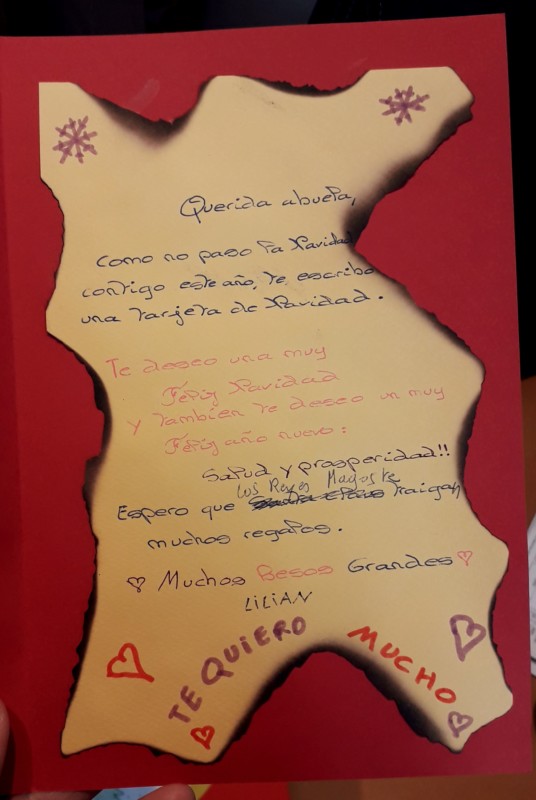 Querida abuela,
como no paso la Navidad
contigo este año, te escribo
una tarjeta de Navidad.
Te deseo una muy
Féliz Navidad
y también te deseo un muy
Féliz año nuevo:
Salud y prosperidad!!
Los Reyes Magos te
Espero que traigan
muchos regalos.
Muchos Besos Grandes
LILIAN
TE QUIERO MUCHO